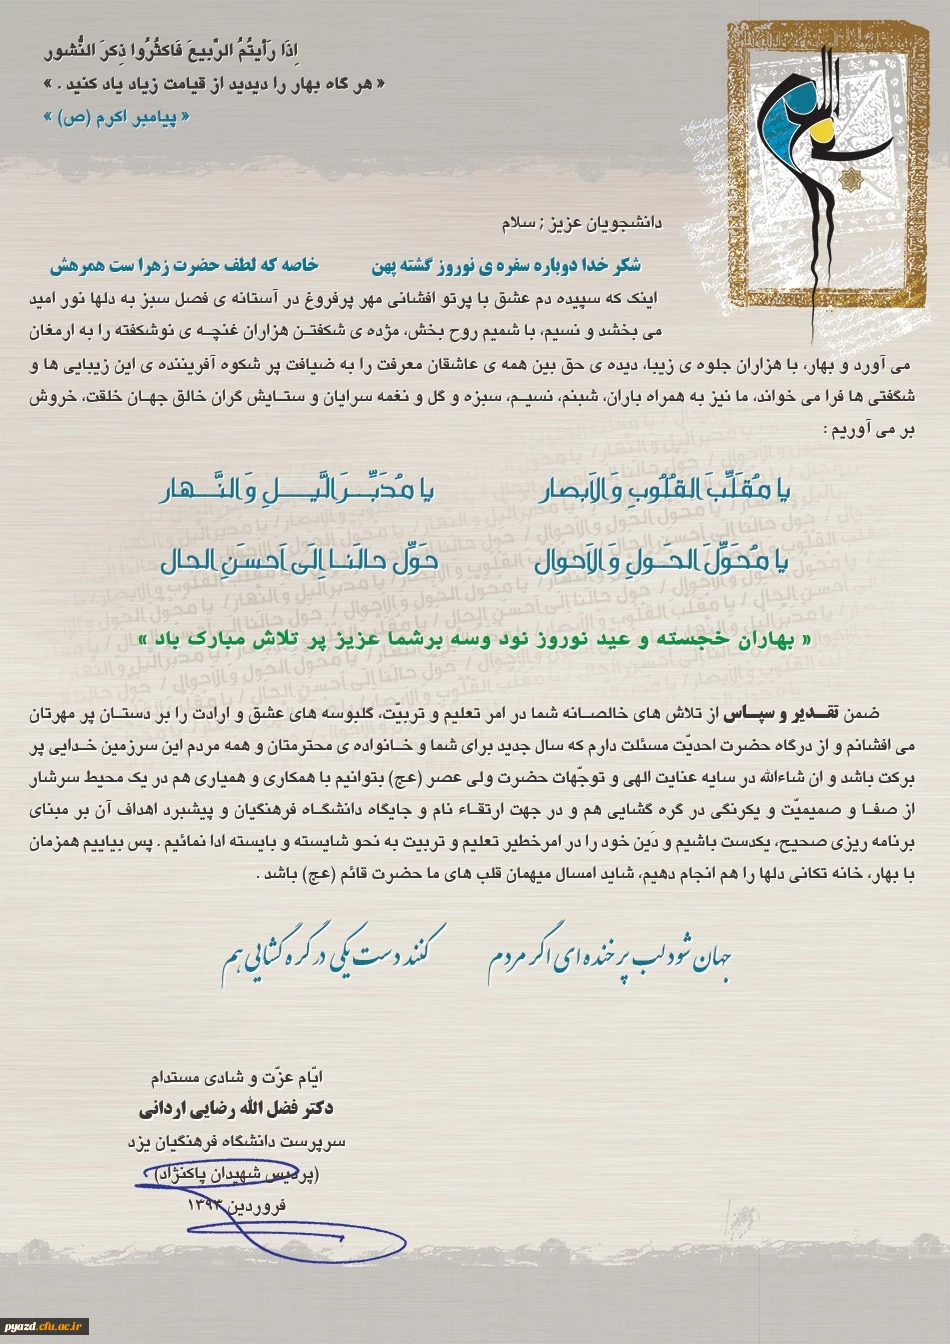 اِذَا رَأیتُمُ الرَّبیعَ فَاکثُرُوا ذِکرَ النُّشور
« هر گاه بهار را دیدید از قیامت زیاد یاد کنید . »
« پیامبر اکرم (ص) »
دانشجویان عزیز ; سلام
شکر خدا دوباره سفره ی نوروز گشته پهن خاصه که لطف حضرت زهرا ست همرهش
اینک که سپیده دم عشق با پرتو افشانی مهر پرفروغ در آستانه ی فصل سبز به دلها نور امید
می بخشد و نسیم، با شمیم روح بخش، مژده ی شکفتـن هزاران غنچـه ی نوشکفته را به ارمغان
می آورد و بهار، با هزاران جلوه ی زیبا، دیده ی حق بین همه ی عاشقان معرفت را به ضیافت پر شکوه آفریننده ی این زیبایی ها و
شگفتی ها فرا می خواند، ما نیز به همراه باران، شبنم، نسیـم، سبزه و گل و نغمه سرایان و ستـایش گران خالق جهـان خلقت، خروش
بر می آوریم :
یا مُقَلِّبَ القُلُوبِ وَ الاَبصار یا مُدَبِّـرَ الَّیـــلِ وَ النَّـــهار
یا مُحَوِّلَ الحَـولِ وَ الاَحوال حَوِّل حالَنـا اِلَی اَحسَنِ الحال
« بهاران خجسته و عید نوروز نود وسه برشما عزیز پر تلاش مبارک باد »
ضمن تقـدیر و سپـاس از تلاش های خالصـانه شما در امر تعلیم و تربیّت، گلبوسه های عشق و ارادت را بر دستـان پر مهرتان
می افشانم و از درگاه حضرت احدیّت مسئلت دارم که سال جدید برای شما و خـانواده ی محترمتان و همه مردم این سرزمین خدایی پر
برکت باشد و ان شاءالله در سایه عنایت الهی و توجّهات حضرت ولی عصر (عج) بتوانیم با همکاری و همیاری هم در یک محیط سرشار
از صفـا و صمیمیّت و یکرنگی در گره گشایی هم و در جهت ارتقـاء نام و جایگاه دانشگـاه فرهنگیان و پیشبرد اهداف آن بر مبنای
برنامه ریزی صحیح، یکدست باشیم و دَین خود را در امرخطیر تعلیم و تربیت به نحو شایسته و بایسته ادا نمائیم . پس بیاییم همزمان
با بهار، خانه تکانی دلها را هم انجام دهیم، شاید امسال میهمان قلب های ما حضرت قائم (عج) باشد .
جهان شود لب پر خنده ای اگر مردم کنند دست یکی در گره گشایی هم
ایّام عزّت و شادی مستدام
دکتر فضل الله رضایی اردانی
سرپرست دانشگاه فرهنگیان یزد
(پردیس شهیدان پاکنژاد)
فروردین ۱۳۹۳
pyazd.cfu.ac.ir